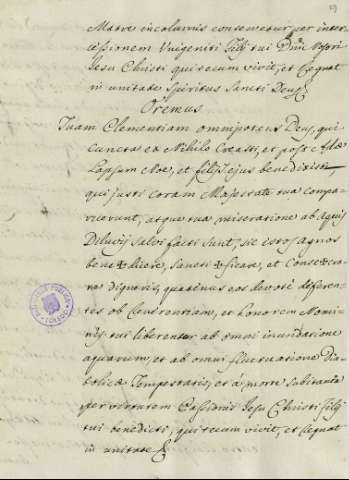 Matre incolumis conservetur per inter
cessionem Unigeniti Filij tui Dnī Nostri
Jesu Christi qui tecum vivit, et Regnat
in unitate Spiritus Sancti Deus
Oremus
Tuam Clementiam omnipotens Deus, qui
cuncta ex Nihilo Creasti, et post Adæ
Lapsum Noe, et filijs ejus benedixisti
qui justi coram Majestate tua compa
ruerunt, atque tua miseratione ab Aquis
Diluvij salvi facti sunt, sic istos agnos
bene✠dicere, sancti✠ficare, et Consecra
re digneris, quatenus eos devote deferen
tes ob Reverentiam, et honorem Nomi
nis tui liberentur ab omni inundatione
aquarum, et ab omni fluctuatione Dia
bolicæ Tempestatis, et à morte subitanea
per virtutem Passionis Jesu Christi Filij
tui benedicti, qui tecum vivit, et Regnat
in unitate